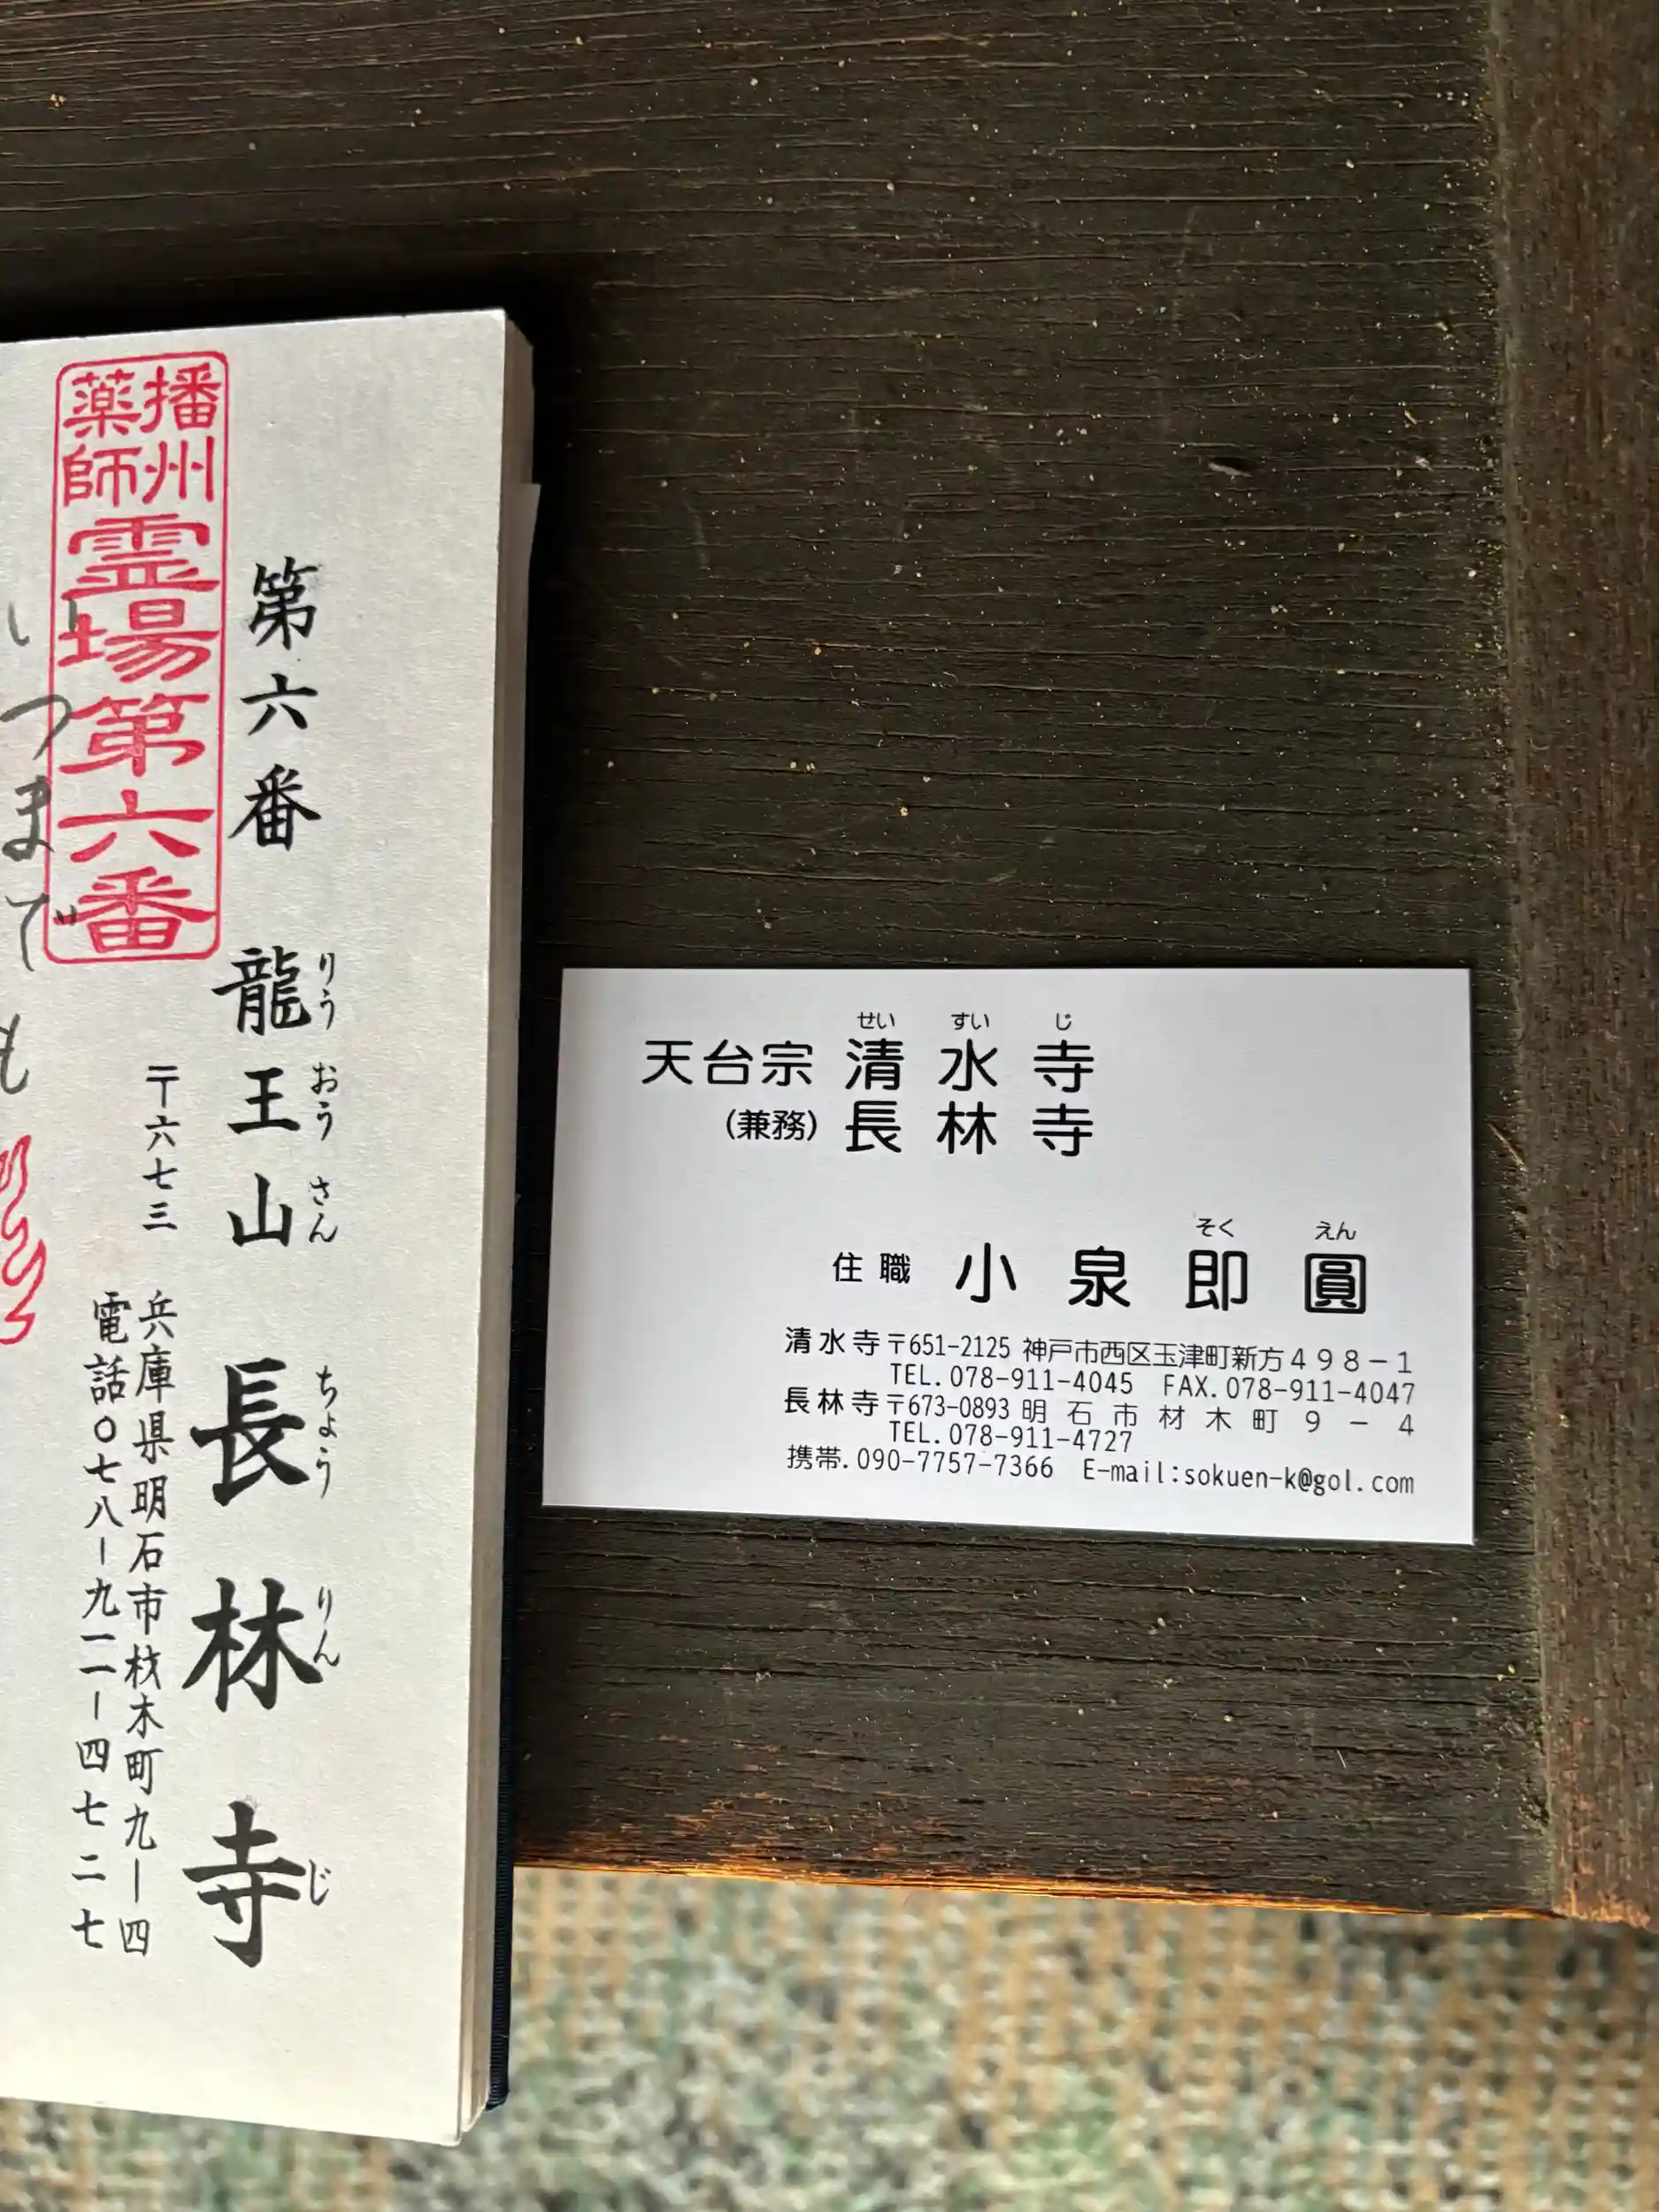 第六番 龍王山 長林寺
りう おう さん ちょう りん じ
〒六七三 兵庫県明石市材木町九ー四
電話〇七八ー九一一ー四七二七
播州
薬師
霊場第六番
いつまでも
せい すい じ
天台宗 清水寺
(兼務) 長林寺
そく えん
住職 小泉即圓
清水寺 〒651-2125 神戸市西区玉津町新方498-1
TEL.078-911-4045 FAX.078-911-4047
長林寺 〒673-0893 明石市材木町9-4
TEL.078-911-4727
携帯.090-7757-7366 E-mail:sokuen-k@gol.com